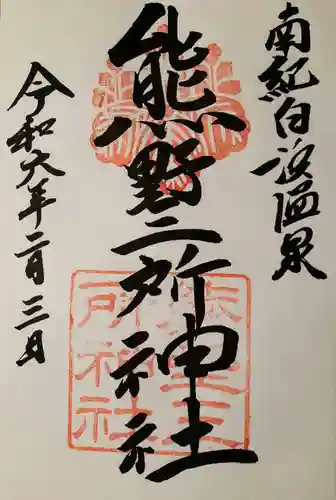 南紀白浜温泉
熊野三所神社
令和六年二月三日
熊三
所神社